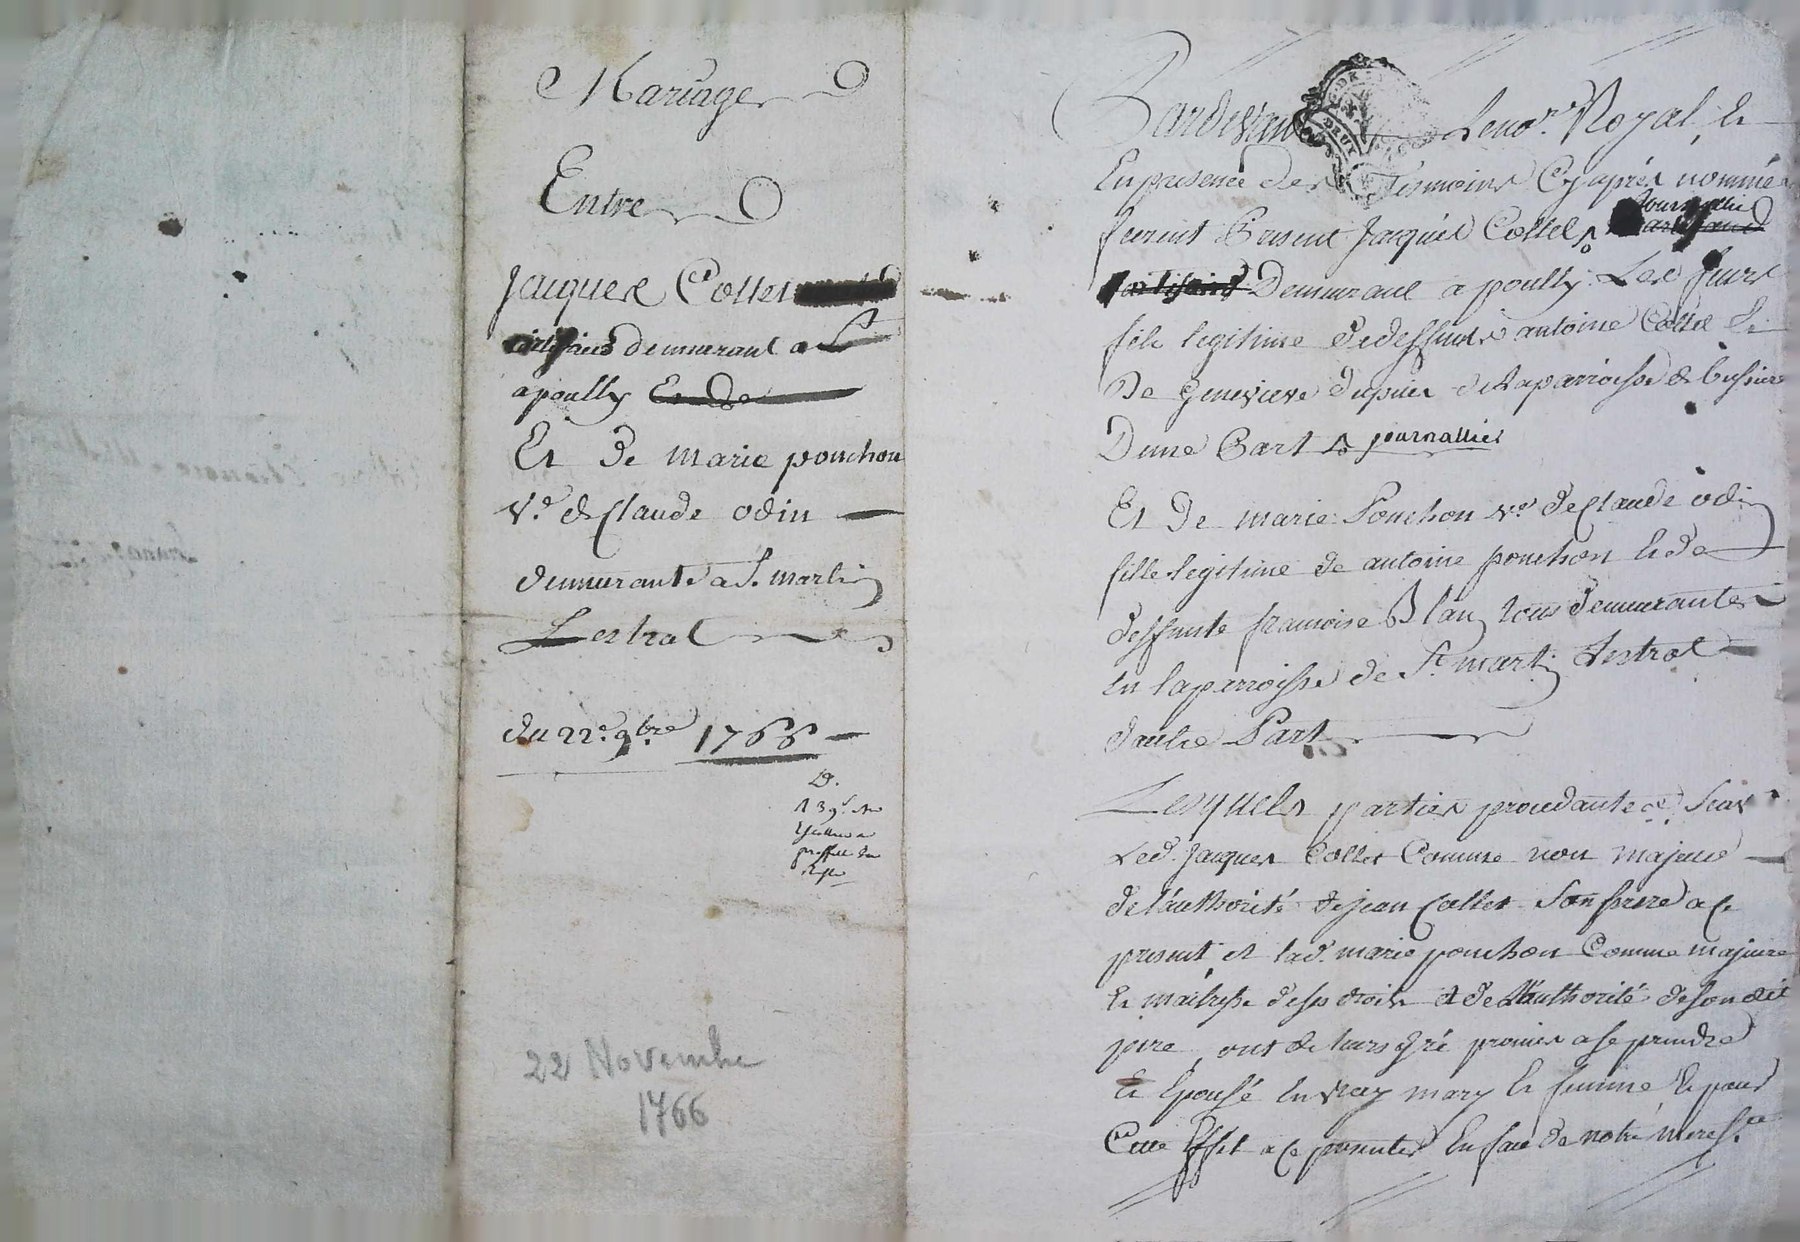 Mariage
Entre
Jacques Collet
artisans demurant a St
a poully Et de
Et de marie ponchon
Ve. de Claude odin
demurante a St. martin
Lestral
du 22e. 9bre 1766
22 Novembre
1766
Pardevant Le nore. Royal, et
En presence des Temoins Cy apres nommés
furent Present Jacques Collet journallie
artisans Demurant a poully Les feurs
fils legitime de deffunts antoine Collet et
De Genevieve dupuer de la parroisse de bussiere
Dune Part journallier
Et De marie Ponchon ve. de Claude odin
fille legitime de antoine ponchon et de
deffunte francoise Blanc tous demurante
En la parroisse de St. martin Lestral
d'autre Part
Lesquels parties procedante Scav
Led. Jacques Collet Comme non majeur
de l'authorité de jean Collet Son frere a ce
present et lad. marie ponchon Comme majeure
et maitresse de ses droits et de l'authorité de son dit
pere, ont de leurs gré promis a se prendre
et Epousé en vray mary et femme et pour
Cette Effet a se presenter En face de notre mere Ste